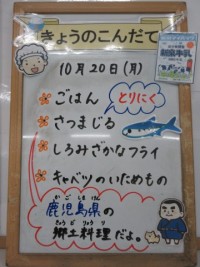 きょうのこんだて
10月20日(月)
ごはん
とりにく
さつまじる
しろみざかなフライ
キャベツのいためもの
かごしまけん
鹿児島県の
きょうどりょうり
郷土料理だよ。